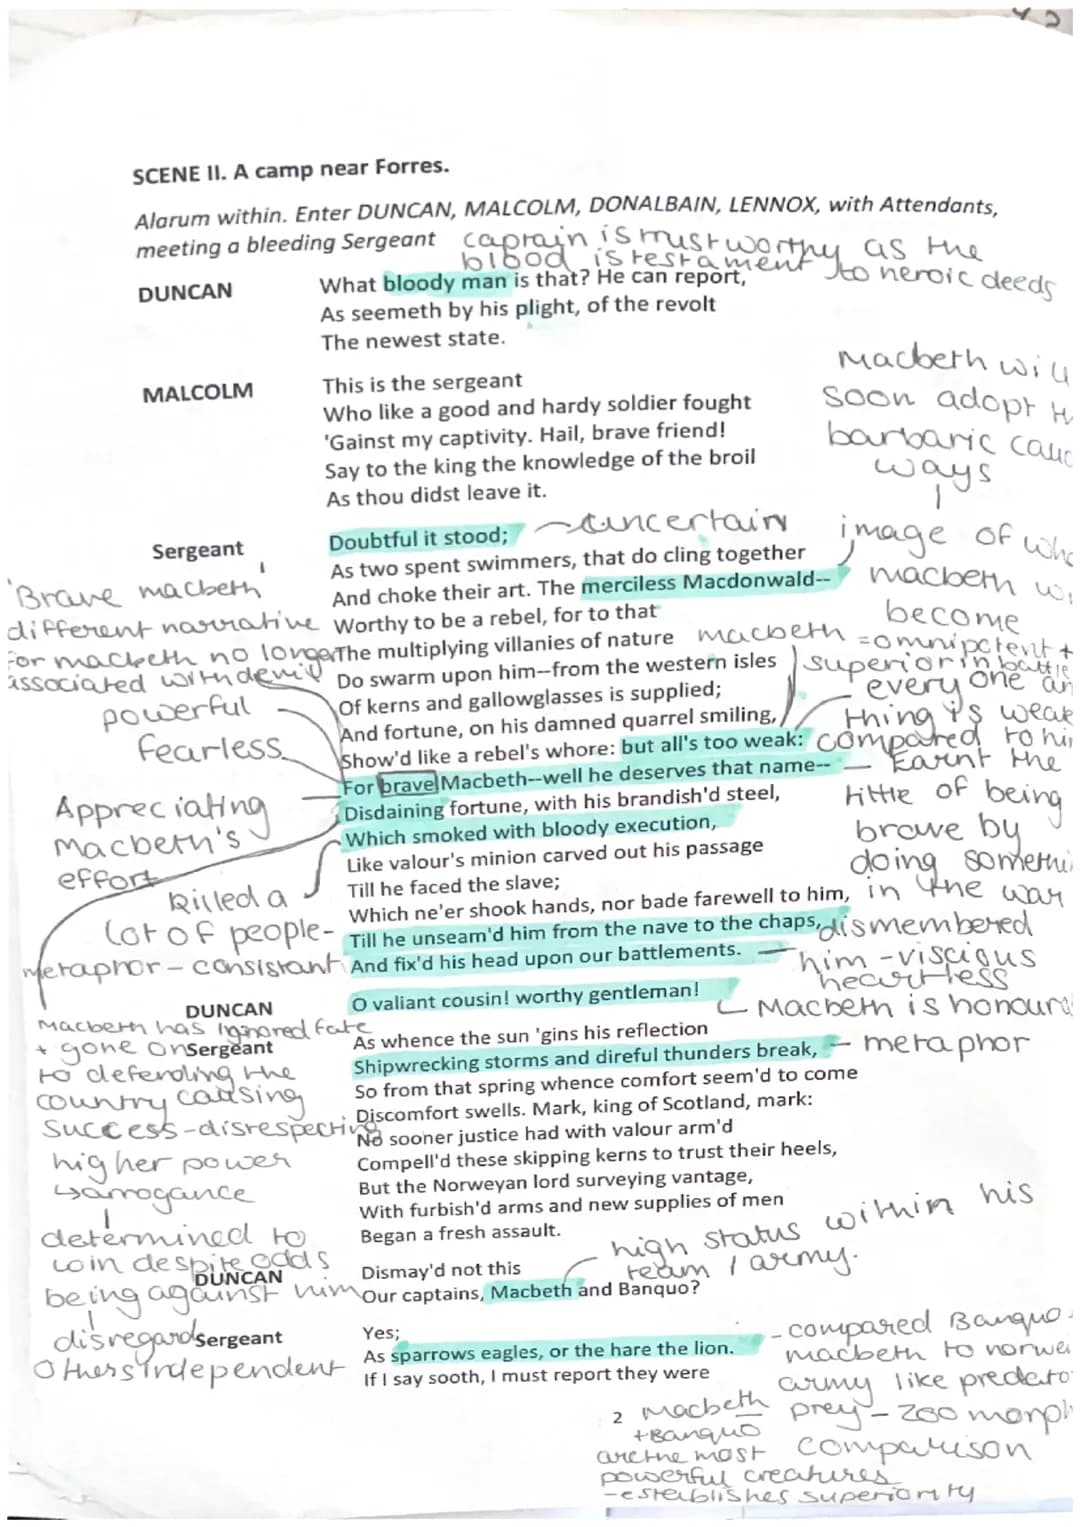 SCENE II. A camp near Forres.
Alarum within. Enter DUNCAN, MALCOLM, DONALBAIN, LENNOX, with Attendants,
meeting a bleeding Sergeant
captain is trustworthy as the
blood is testament to heroic deeds
DUNCAN
What bloody man is that? He can report,
As seemeth by his plight, of the revolt
The newest state.
MALCOLM
This is the sergeant
Who like a good and hardy soldier fought
'Gainst my captivity. Hail, brave friend!
Say to the king the knowledge of the broil
As thou didst leave it.
Macbeth will
soon adopt
barbaric
ways
image of
macbeth
become
Sergeant
Doubtful it stood;
uncertain
As two spent swimmers, that do cling together
And choke their art. The merciless Macdonwald--
Worthy to be a rebel, for to that
The multiplying villanies of nature
Do swarm upon him--from the western isles
Of kerns and gallowglasses is supplied;
And fortune, on his damned quarrel smiling,
Show'd like a rebel's whore: but all's too weak:
For brave Macbeth--well he deserves that name--
Disdaining fortune, with his brandish'd steel,
Which smoked with bloody execution,
Like valour's minion carved out his passage
Till he faced the slave;
Which ne'er shook hands, nor bade farewell to him,
Till he unseam'd him from the nave to the chaps,
And fix'd his head upon our battlements.
'Brave macbeth
different narrative
for macbeth no longer
associated with devil
powerful
fearless
Appreciating
Macbeth's
effort
killed a
lot of people-
metaphor - consistant
macbeth =omnipotent +
superior in battle
every one
thing is weak
compared to
Earnt the
tittle of being
brave by
doing
in the war
dismembered
him - viscious
heartless
DUNCAN
O valiant cousin! worthy gentleman!
Macbeth is
Sergeant
As whence the sun 'gins his reflection
Shipwrecking storms and direful thunders break,
- metaphor
So from that spring whence comfort seem'd to come
Discomfort swells. Mark, king of Scotland, mark:
No sooner justice had with valour arm'd
Compell'd these skipping kerns to trust their heels,
But the Norweyan lord surveying vantage,
With furbish'd arms and new supplies of men
Began a fresh assault.
Macbeth has ignored fate
+ gone on
to defending the
country causing
success - disrespecting
higher power
↳arrogance
determined to
win despite odds
being against him
disregards
others independent
DUNCAN
Dismay'd not this
Our captains, Macbeth and Banquo?
high status within his
team / army.
Sergeant
Yes;
As sparrows eagles, or the hare the lion.
If I say sooth, I must report they were
- compared Banquo
macbeth to
army like
prey -
comparison
2
Macbeth
+Banquo
are the most
powerful creatures
- establishes superiority